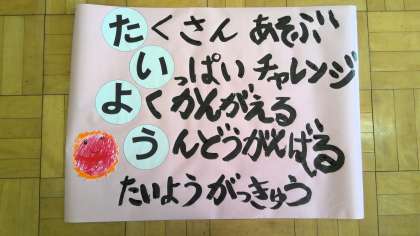 たくさん あそぶ
いっぱい チャレンジ
よく かんがえる
うんどうがんばる
たいようがっきゅう